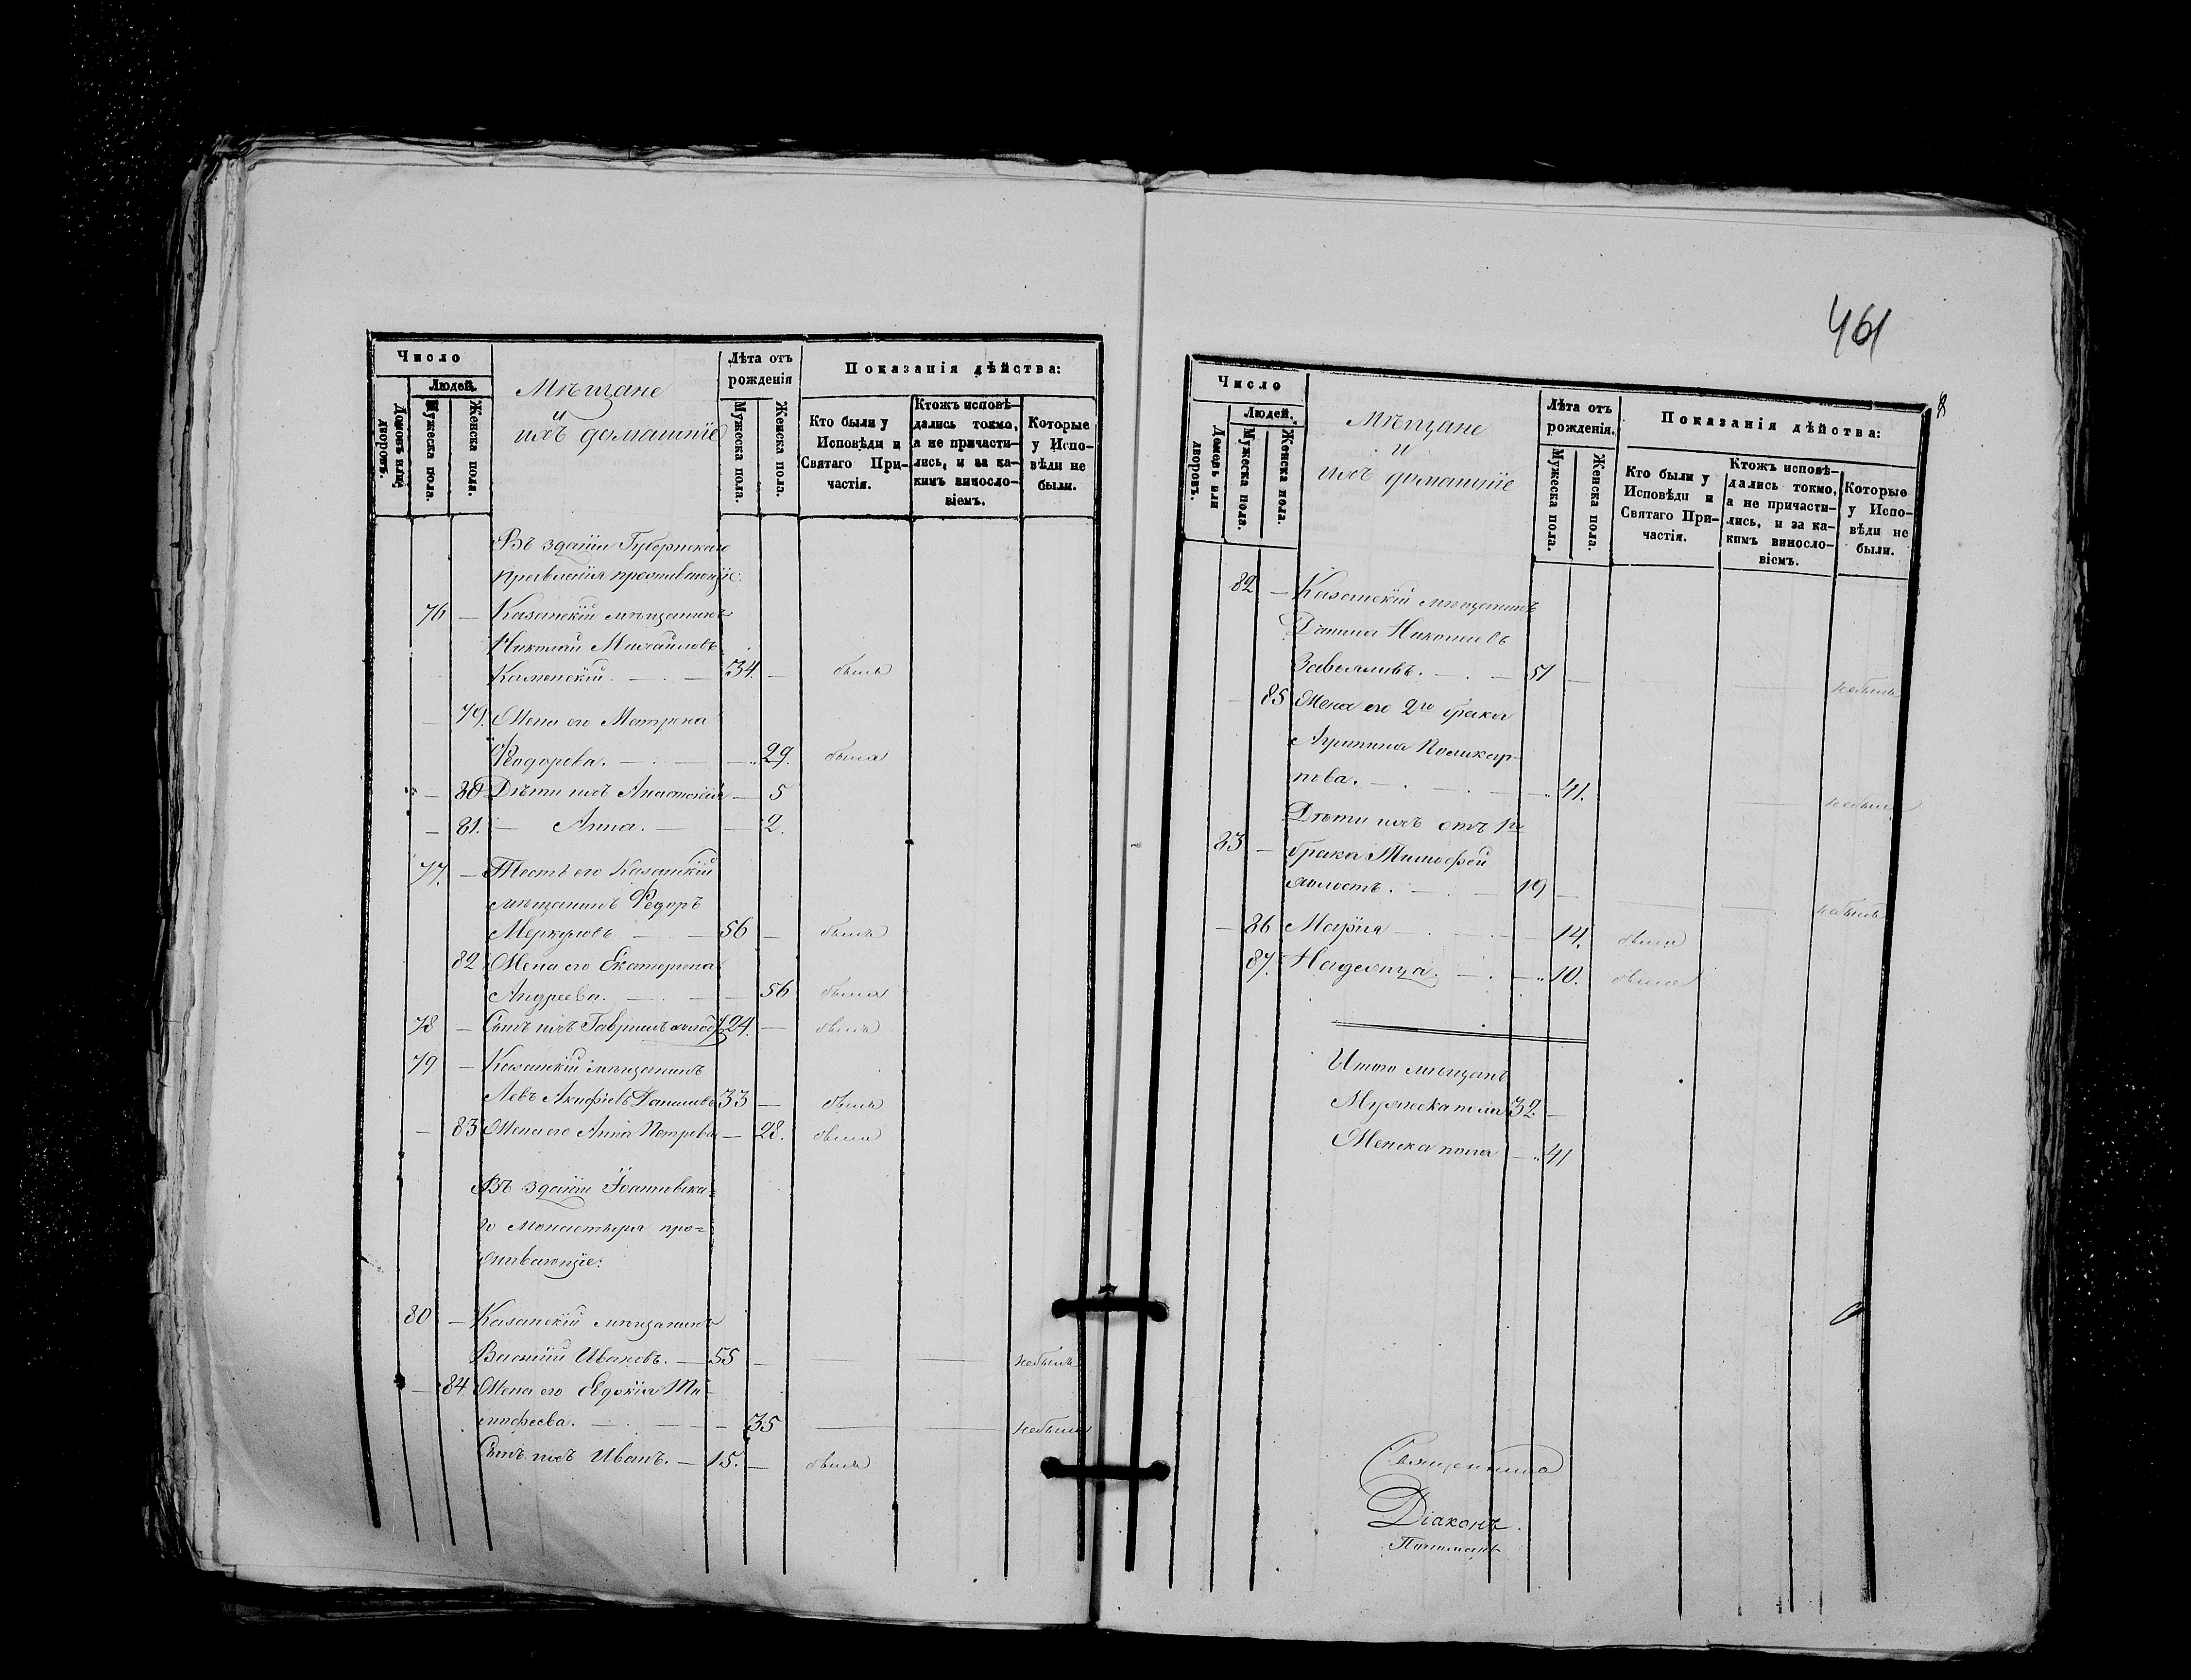 Число
Людей.
Домовъ или дворовъ.
Мужеска пола.
Женска пола.
Мѣщане
и
ихъ домашніе
Лѣта отъ рожденія
Мужеска пола.
Женска пола.
Показанія дѣйства:
Кто были у Исповѣди и Святаго Причастія.
Ктожъ исповѣдались токмо, а не причастились, и за какимъ винословіемъ.
Которые у Исповѣди не были.
Въ зданіи Губернскаго
Правленія проживающіе:
76 — Казанскій мѣщанинъ
Николай Михайловъ
Каменскій. — 34. — былъ
— 79. Жена его Матрона
Феодорова. — 29. была
— 80 Дѣти ихъ Анастасія — 5
— 81. — Анна. — 2.
77. — Тесть его Казанскій
мѣщанинъ Федоръ
Меркуловъ — 56 — былъ
82 Жена его Екатерина
Андреева. — 56 была
78 — Сынъ ихъ Гавріилъ холос. 24. — былъ
79 — Казанскій мѣщанинъ
Левъ Акифіевъ Даниловъ 33 — былъ
— 83 Жена его Анна Петрова — 28. была
Въ зданіи Іоанновска=
го Монастыря про=
живающіе:
80 — Казанскій мѣщанинъ
Василій Ивановъ. — 55 — — — небылъ
— 84. Жена его Евдокія Ти-
мофеева. — 35 — — небыла
Сынъ ихъ Иванъ. — 15. — былъ
461
8
Число
Людей.
Домовъ или дворовъ.
Мужеска пола.
Женска пола.
Мѣщане
и
ихъ домашніе
Лѣта отъ рожденія.
Мужеска пола.
Женска пола.
Показанія дѣйства:
Кто были у Исповѣди и Святаго Причастія.
Ктожъ исповѣдались токмо, а не причастились, и за какимъ винословіемъ.
Которые у Исповѣди не были.
82 — Казанскій мѣщанинъ
Данило Николаевъ
Завьяловъ. — 51 — небылъ
— 85 Жена его 2го брака
Агрипина Поликар-
пова. — 41. — небыла
Дѣти ихъ отъ 1го
83 — брака Тимофей
холостъ. — 19 — небылъ
— 86 Марія — 14. была
87. Надежда. — 10. была
Итого мѣщанъ
Мужеска пола 32. —
Женска пола — 41
Священникъ
Діаконъ.
Пономарь